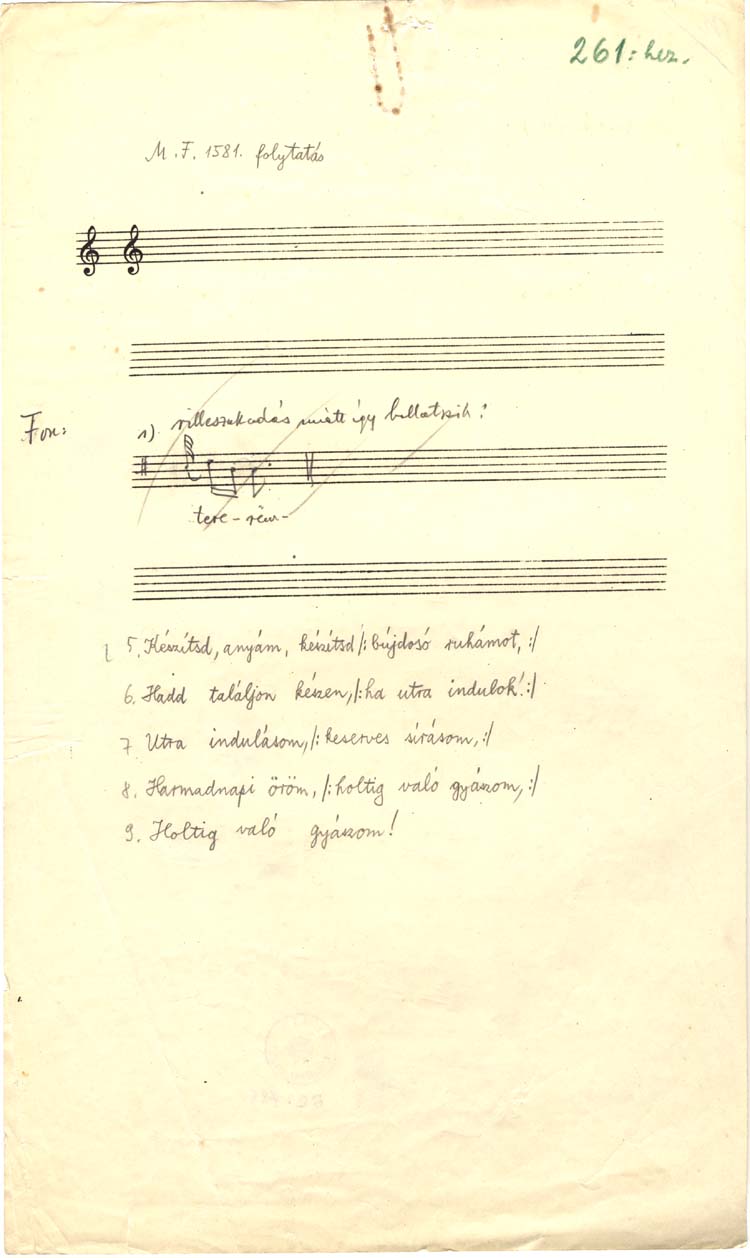 261: hez.
M. F. 1581. folytatás
Fon:
1) rilleszakadás miatt így hallatszik?
tere - rëm -
5. Készítsd, anyám, készítsd /: bújdosó ruhámot, :/
6. Hadd találjon készen, /: ha utra indulok! :/
7 Utra indulásom, /: keserves sírásom, :/
8. Harmadnapi öröm, /: holtig való gyászom, :/
9. Holtig való gyászom!